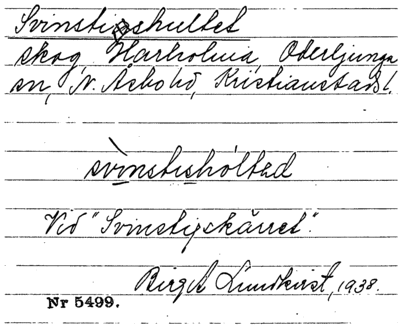 Svinstigshultet
skog, Harholma, Oderljunga
sn, N. Åsbo hd, Kristianstads l.
svinstishóltəd
Vid "Svinstigskärret".
Birgit Lundkvist, 1938.
Nr 5499.